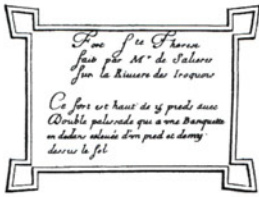 Fort S.te Therese
fait par M.r de Salieres
sur la Riviere des Iroquois
Ce fort est haut de 15 pieds avec
Double palissade qui a une Banquette
en dedans eslevée d'un pied et demy
dessus le sol